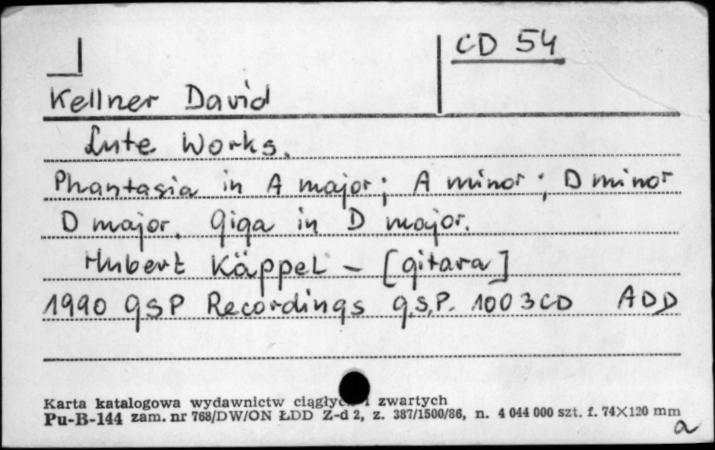 CD 54
Kellner David
Lute Works.
Phantasia in A major; A minor; D minor
D major. Giga in D major.
Hubert Käppel - [gitara]
1990 GSP Recordings G.S.P. 1003CD ADD
Karta katalogowa wydawnictw ciągłych i zwartych
Pu-B-144 zam. nr 768/DW/ON ŁDD Z-d 2, z. 387/1500/86, n. 4 044 000 szt. f. 74×120 mm
a